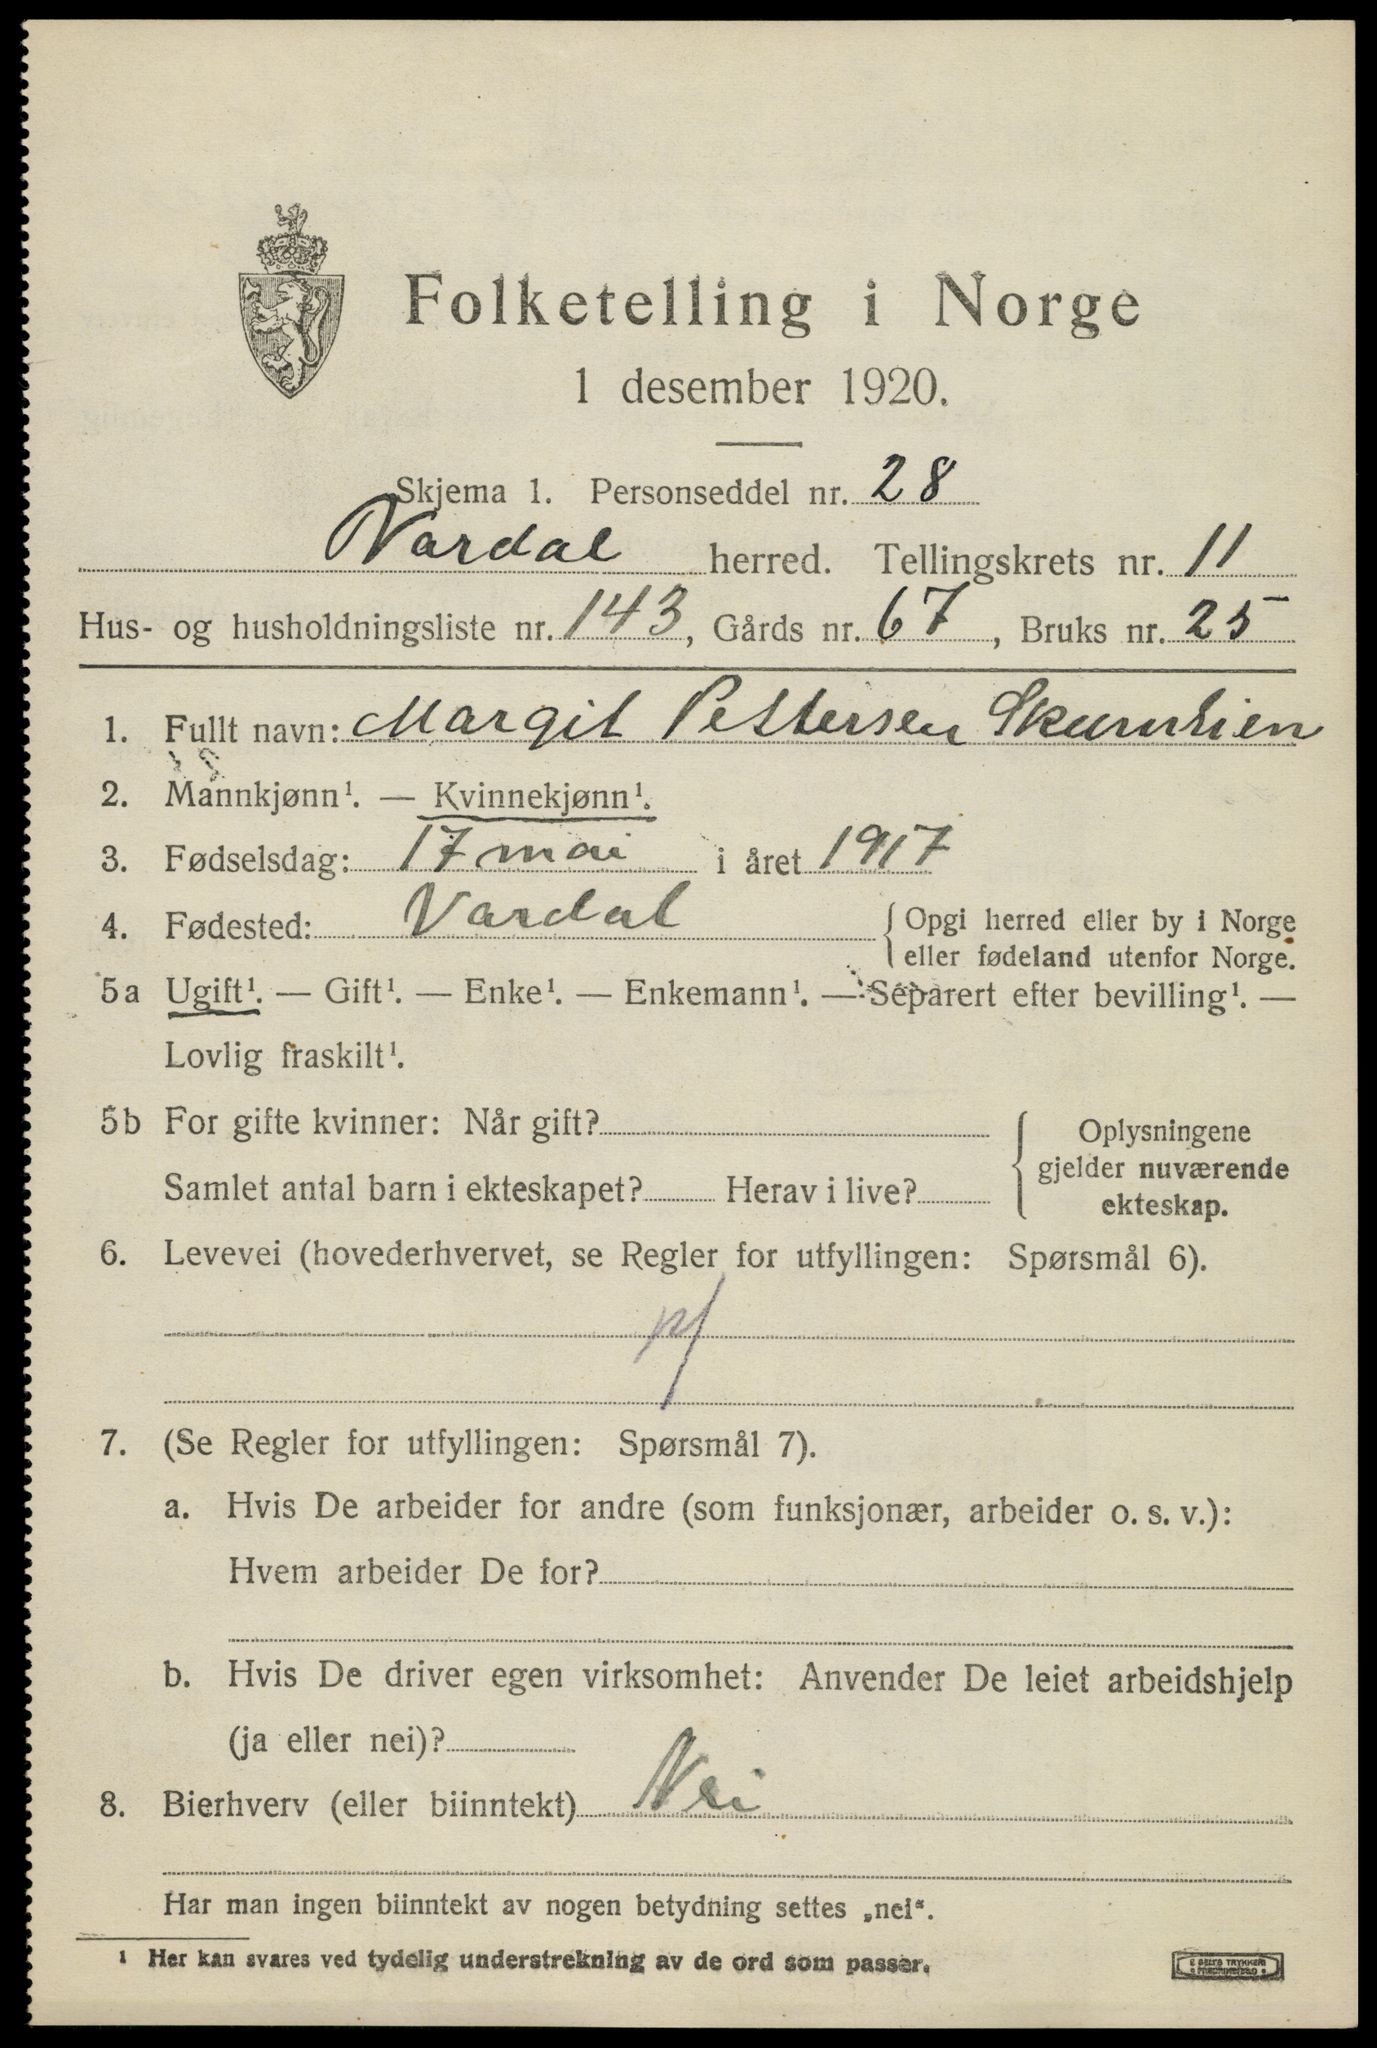 Folketelling i Norge
1 desember 1920.
Skjema 1. Personseddel nr. 28
Vardal herred. Tellingskrets nr. 11
Hus- og husholdningsliste nr. 143, Gårds nr. 67, Bruks nr. 25
1. Fullt navn: Margit Pettersen Skurulien
2. Mannkjønn¹. — Kvinnekjønn¹.
3. Fødselsdag: 17 mai i året 1917
4. Fødested: Vardal { Opgi herred eller by i Norge
eller fødeland utenfor Norge.
5a Ugift¹. — Gift¹. — Enke¹. — Enkemann¹. — Separert efter bevilling¹. —
Lovlig fraskilt¹.
5b For gifte kvinner: Når gift?
Samlet antal barn i ekteskapet? Herav i live?
{ Oplysningene
gjelder nuværende
ekteskap.
6. Levevei (hovederhvervet, se Regler for utfyllingen: Spørsmål 6).
7. (Se Regler for utfyllingen: Spørsmål 7).
a. Hvis De arbeider for andre (som funksjonær, arbeider o. s. v.):
Hvem arbeider De for?
b. Hvis De driver egen virksomhet: Anvender De leiet arbeidshjelp
(ja eller nei)?
8. Bierhverv (eller biinntekt) Nei
Har man ingen biinntekt av nogen betydning settes „nei“.
¹ Her kan svares ved tydelig understrekning av de ord som passer.